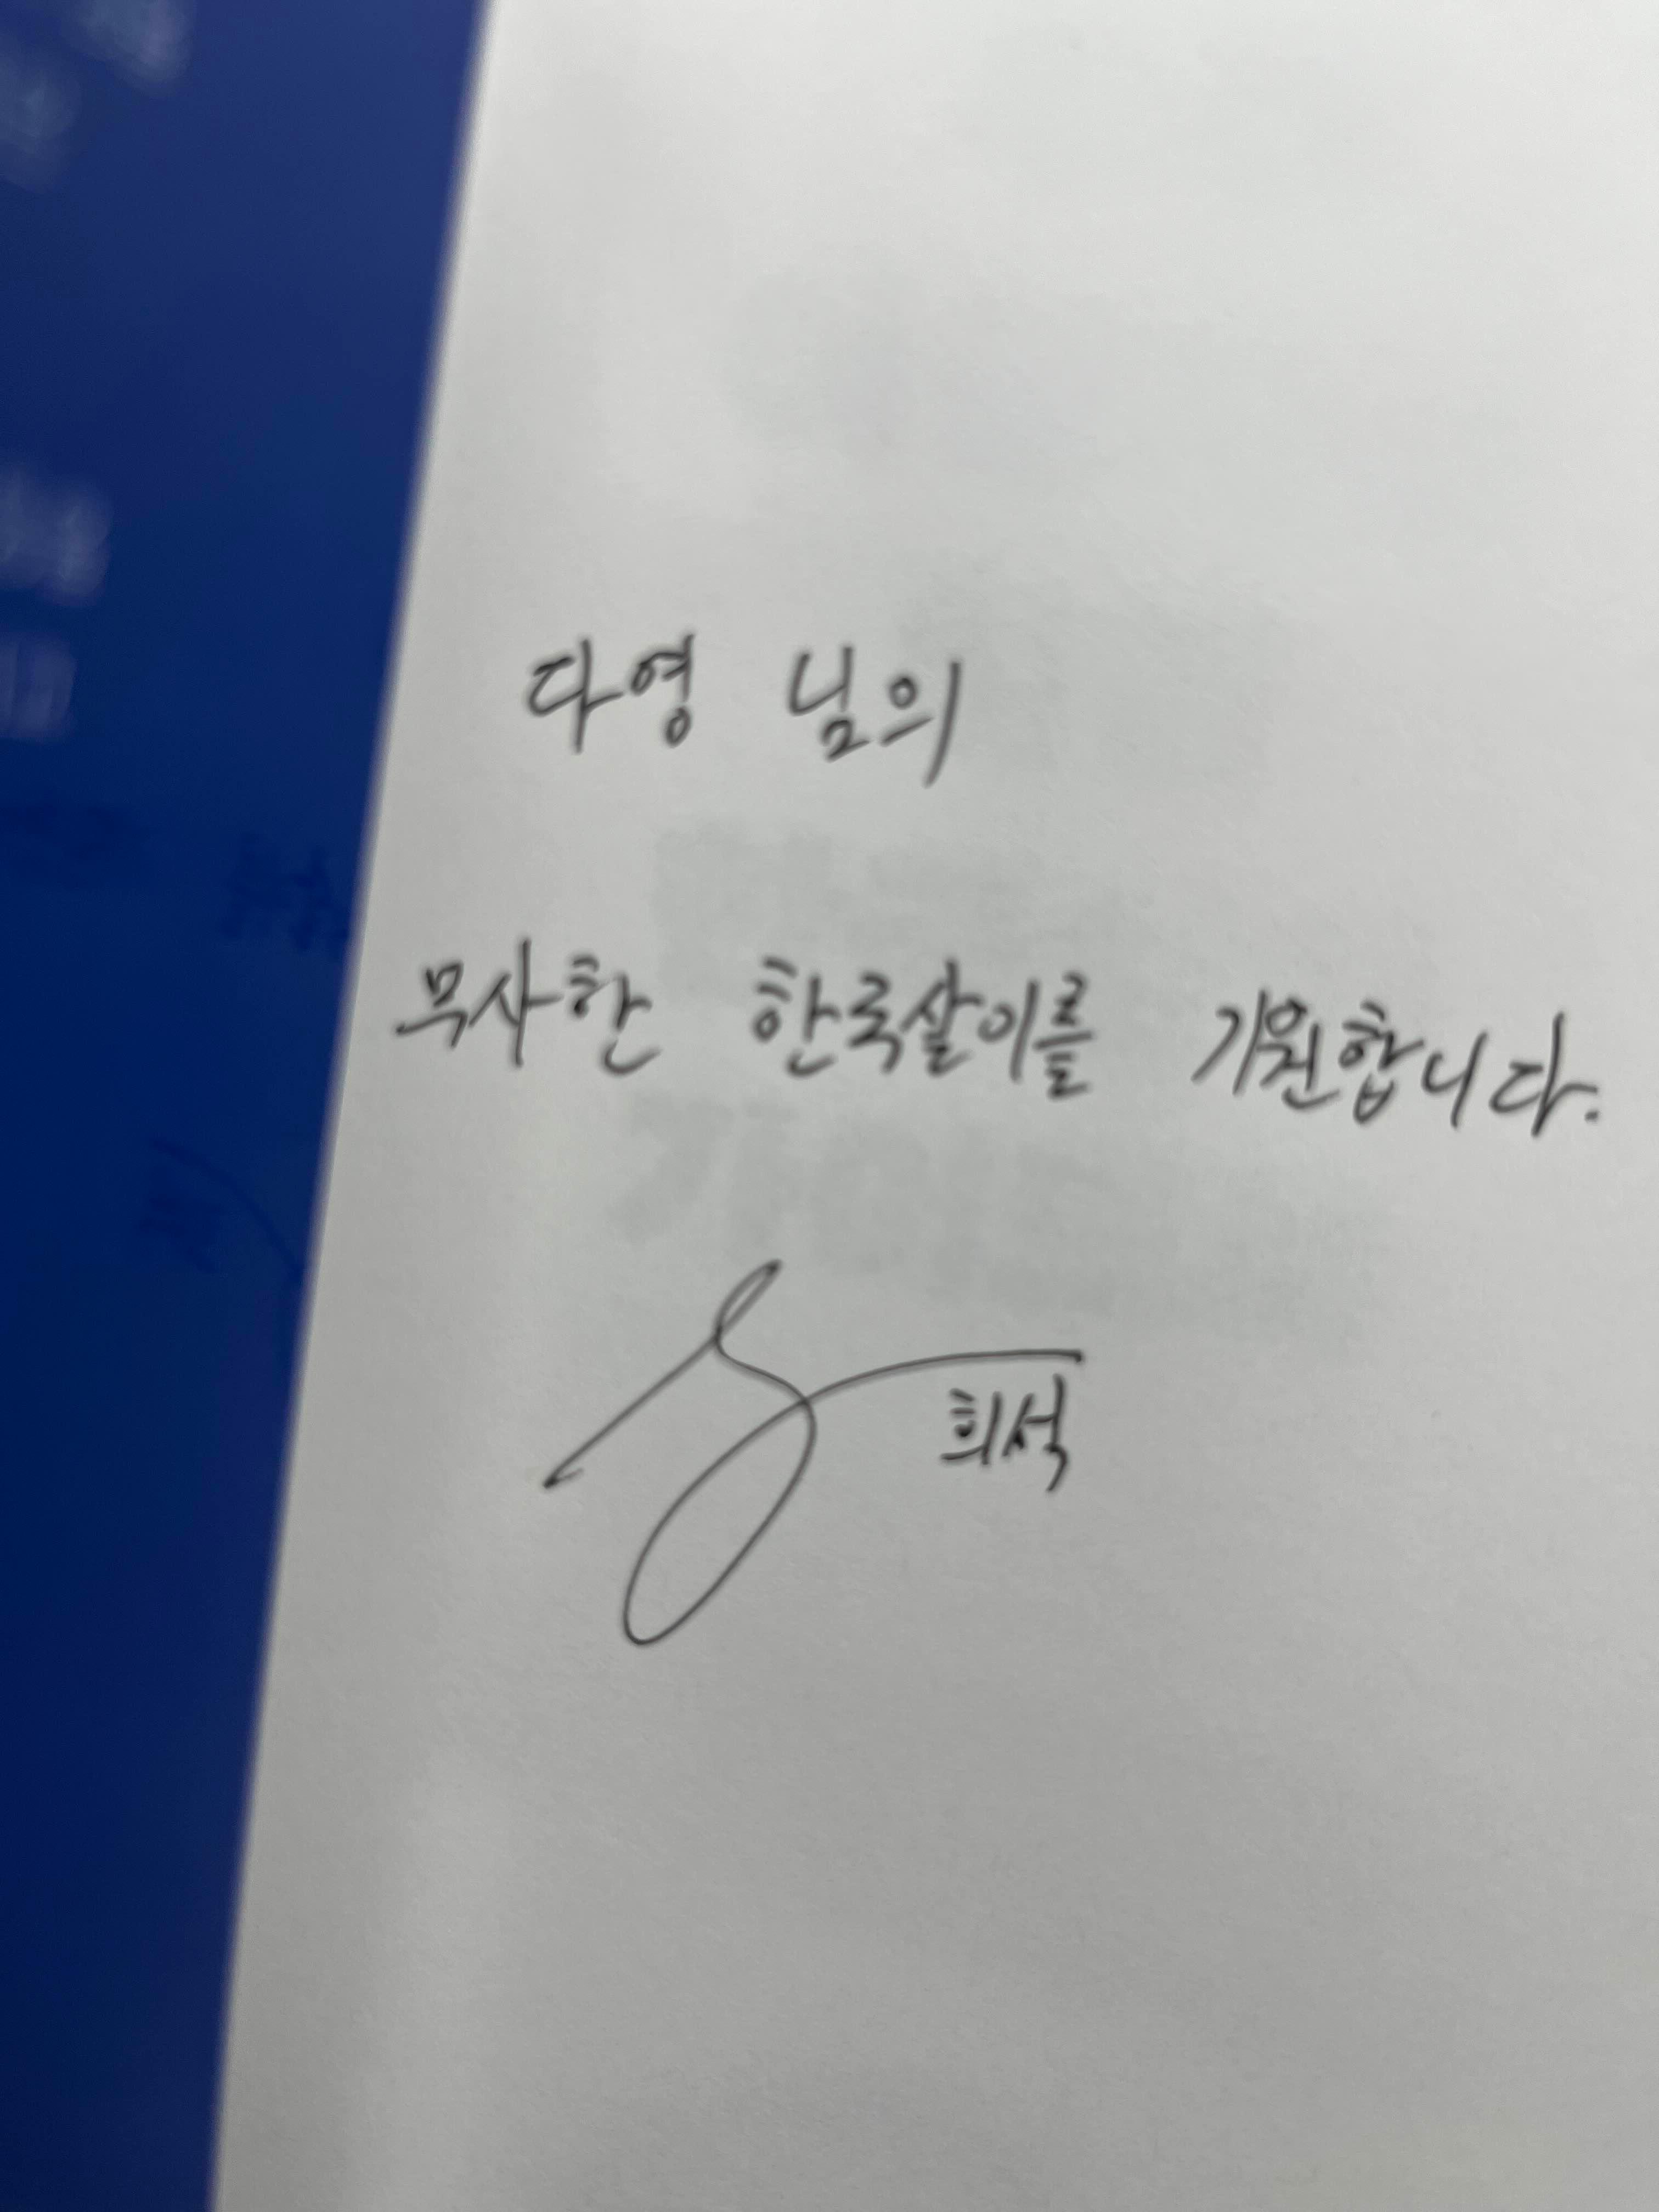 다영 님의
무사한 한국살이를 기원합니다.
희석